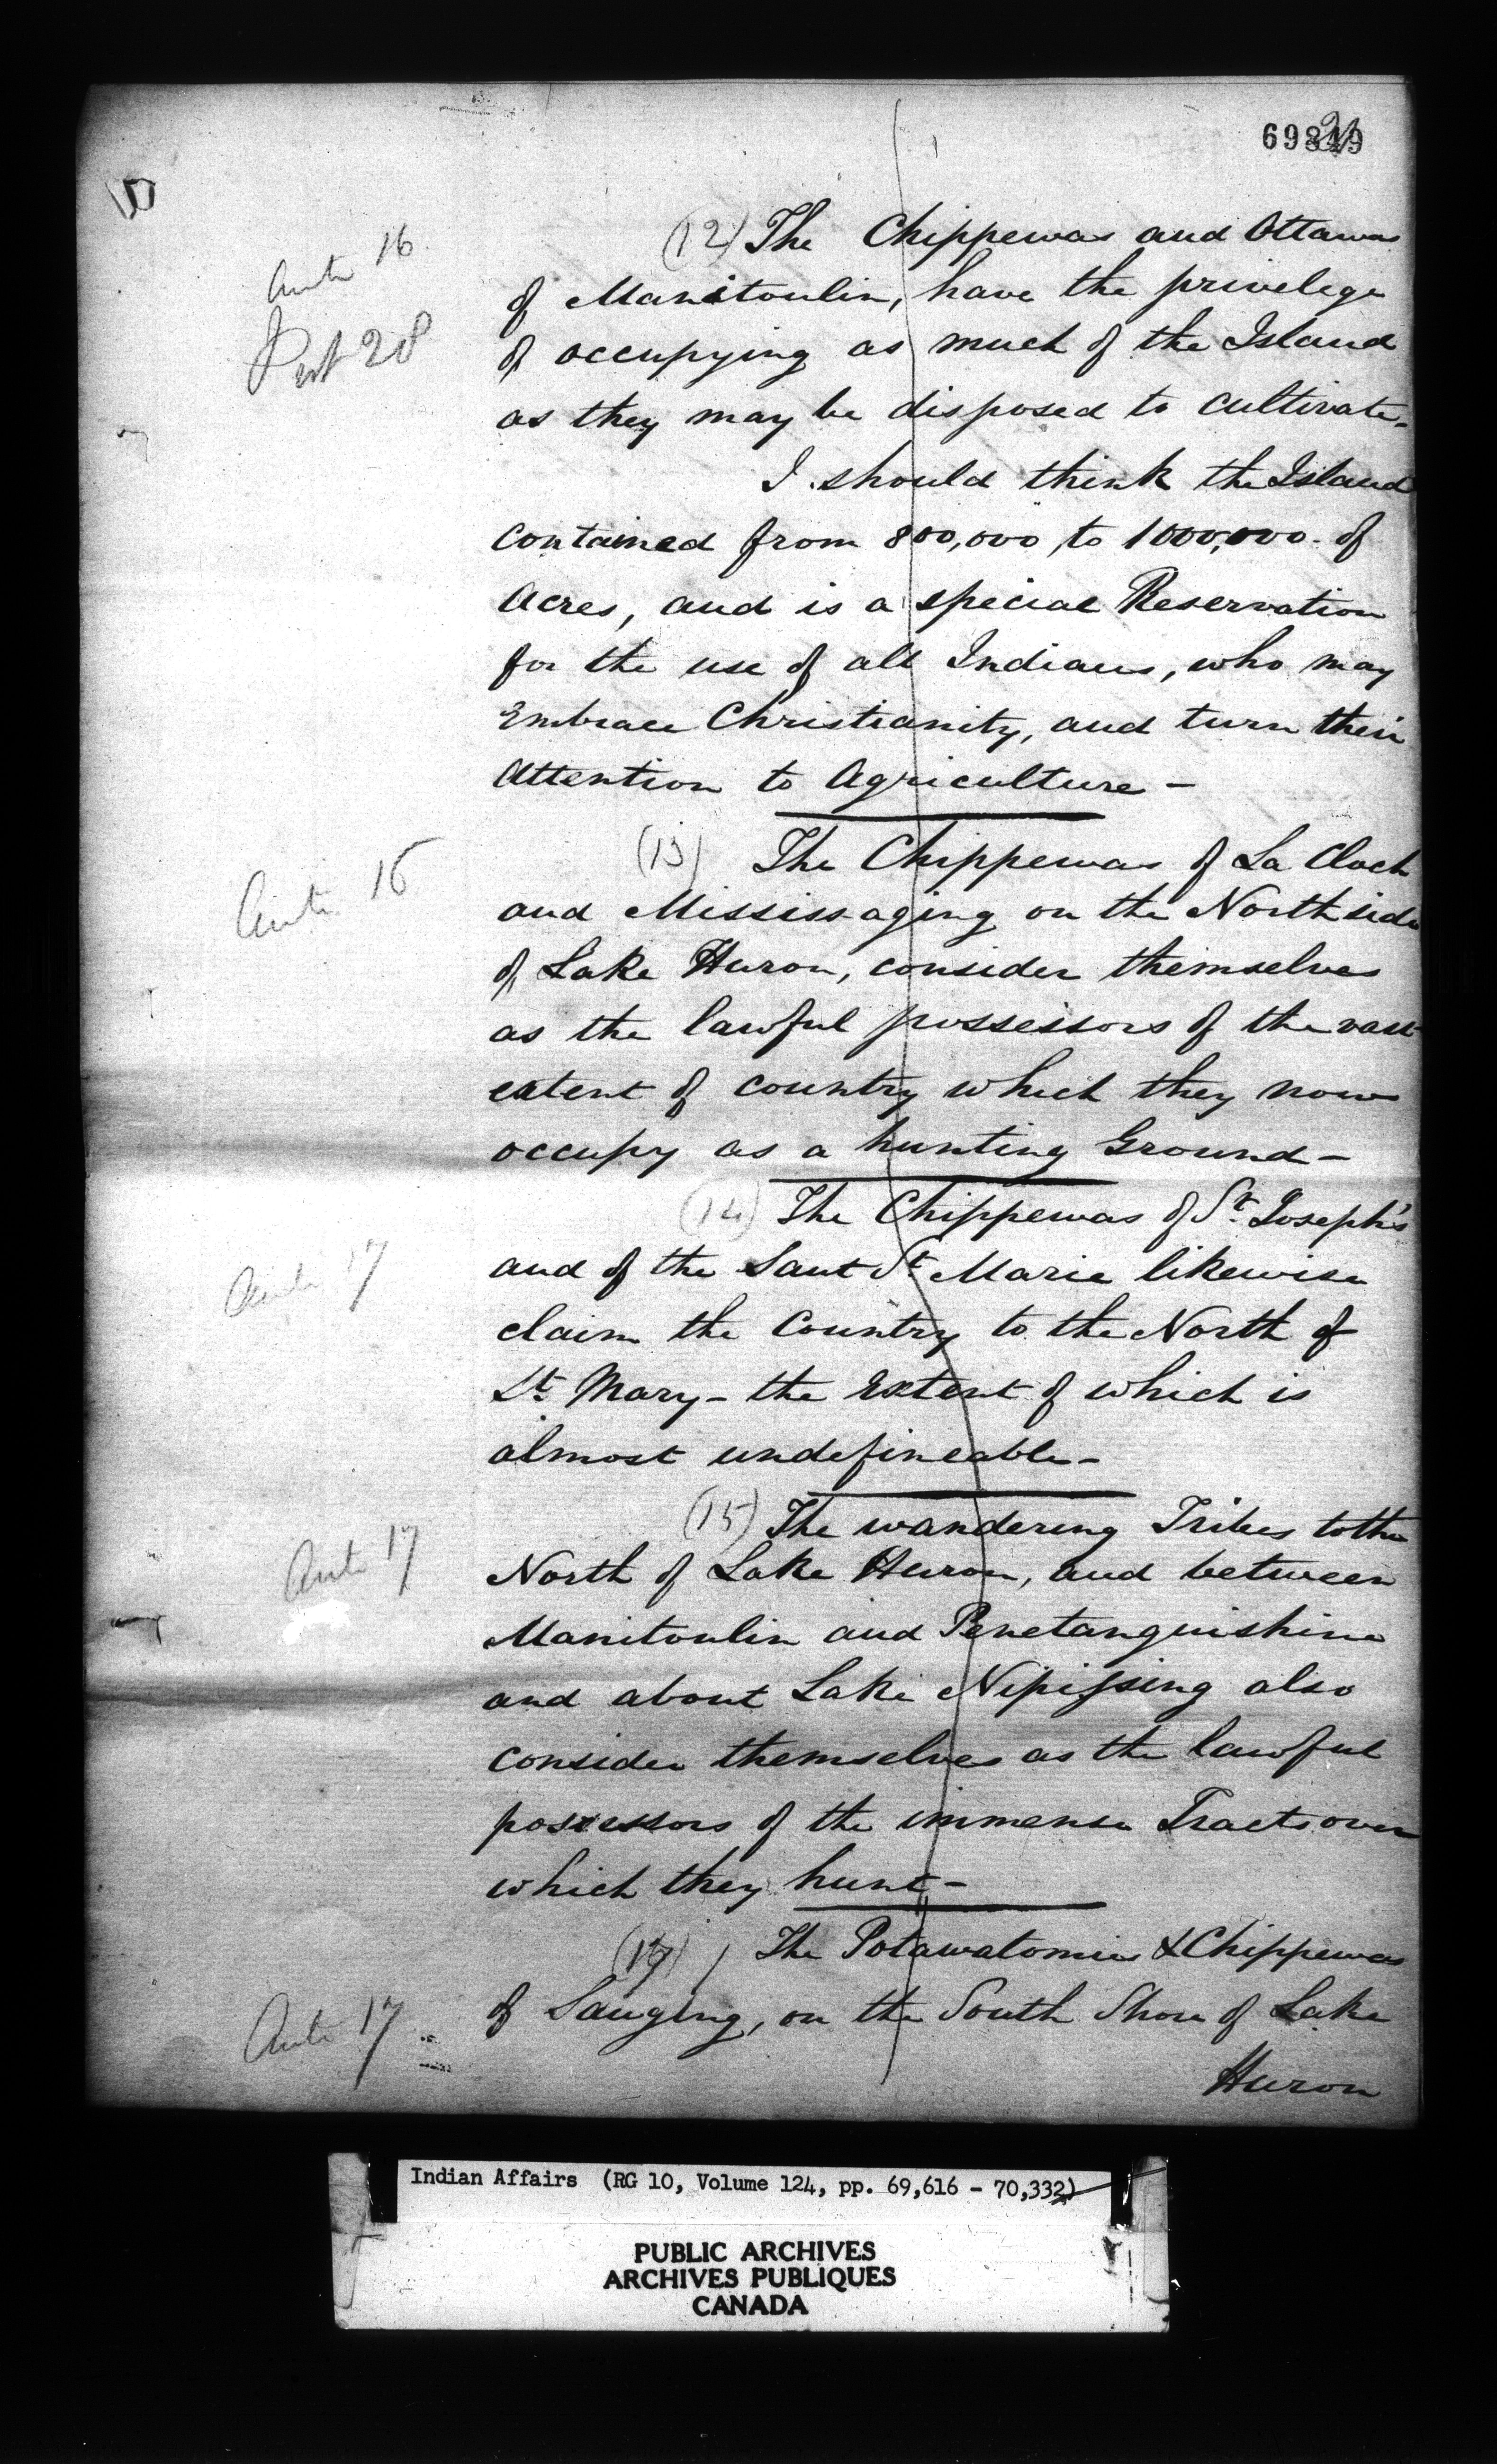 (12) The Chippewas and Ottawas
Ante 16
of Manitoulin, have the privelege
Post 28
of occupying as much of the Island
as they may be disposed to cultivate.
I should think the Island
contained from 800,000 to 1000,000 of
Acres, and is a special Reservation
for the use of all Indians, who may
Embrace Christianity, and turn their
Attention to Agriculture —
(13) The Chippewas of La Cloch
Ante 15
and Mississaging on the North side
of Lake Huron, consider themselves
as the lawful possessors of the vast
extent of country which they now
occupy as a hunting Ground —
(14) The Chippewas of St. Joseph's
Ante 17
and of the Saut St Marie likewise
claim the Country to the North of
St. Mary — the Extent of which is
almost undefineable —
(15) The wandering Tribes to the
Ante 17
North of Lake Huron, and between
Manitoulin and Penetanguishine
and about Lake Nipissing also
consider themselves as the lawful
possessors of the immense Tracts over
which they hunt —
The Potawatomies & Chippewas
Ante 17
of Sauging, on the South Shore of Lake
Huron
Indian Affairs (RG 10, Volume 124, pp. 69,616 - 70,332)
PUBLIC ARCHIVES
ARCHIVES PUBLIQUES
CANADA